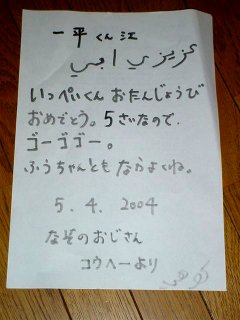 一平くん江
عزيزي ابي
いっぺいくん おたんじょうび
おめでとう。5さいなので
ゴーゴゴー。
ふうちゃんとも なかよくね。
5. 4. 2004
なぞのおじさん
コウヘーより